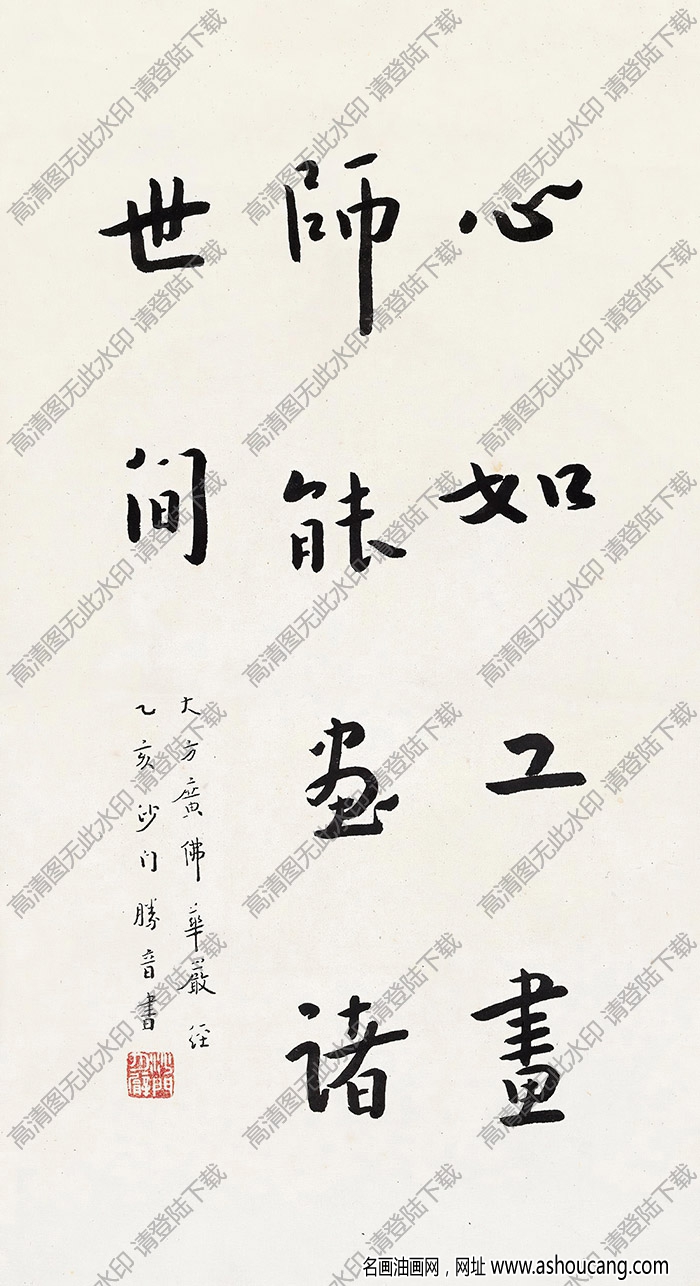 心如工畫
師能畫諸
世间
大方廣佛華嚴經
乙亥沙门勝音書
名画油画网，网址 www.ashoucang.com
高清图无此水印 请登陆下载